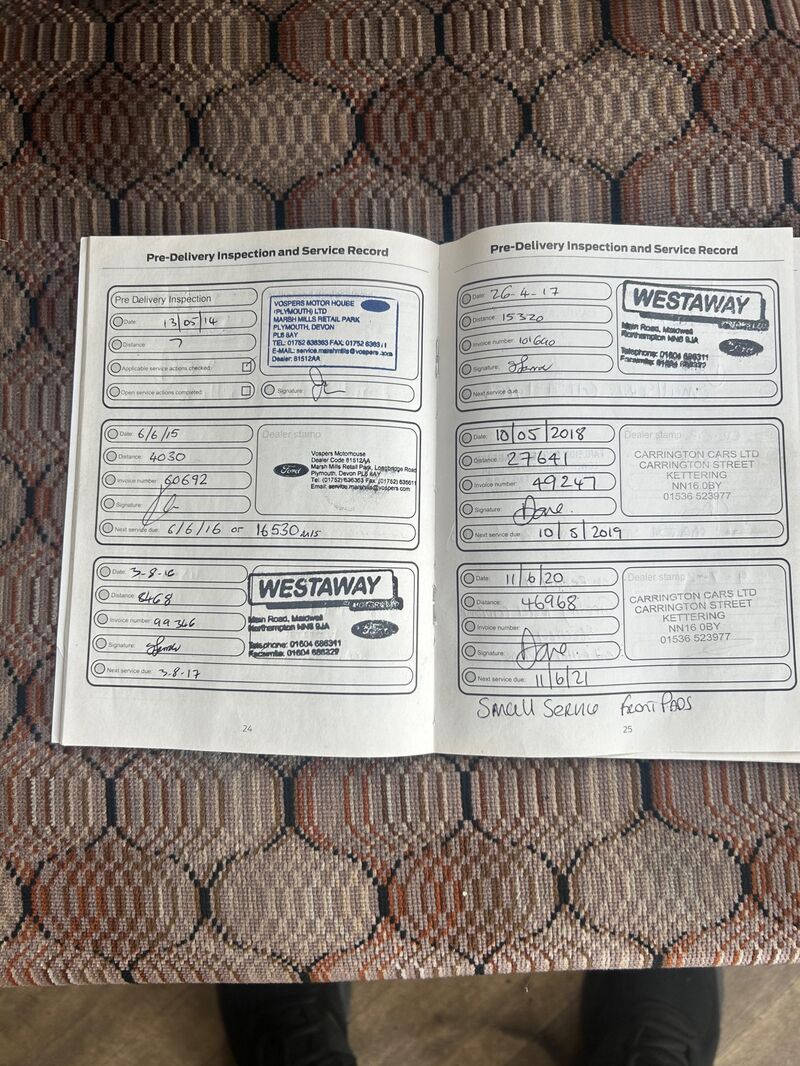 Pre-Delivery Inspection and Service Record
Pre Delivery Inspection
Date: 13/05/14
Distance: 7
Applicable service actions checked:
Open service actions completed:
VOSPERS MOTOR HOUSE
(PLYMOUTH) LTD
MARSH MILLS RETAIL PARK
PLYMOUTH, DEVON
PL6 8AY
TEL: 01752 636363 FAX: 01752 6363
E-MAIL: service.marshmills@vospers.com
Dealer: 81512AA
Signature:
Date: 6/6/15
Distance: 4030
Invoice number: 60692
Signature:
Next service due: 6/6/16 or 16530 mls
Dealer stamp
Ford
Vospers Motorhouse
Dealer Code 81512AA
Marsh Mills Retail Park, Longbridge Road
Plymouth, Devon PL6 8AY
Tel: (01752) 636363 Fax: (01752)
Email: service.marshmills@vospers.com
Date: 3-8-16
Distance: 8468
Invoice number: 99346
Signature:
Next service due: 3-8-17
WESTAWAY
MOTORS LTD
Main Road, Maidwell
Northampton NN6 9JA
Ford
Telephone: 01604 686311
Facsimile: 01604 686327
24
Pre-Delivery Inspection and Service Record
Date: 26-4-17
Distance: 15320
Invoice number: 101640
Signature:
Next service due:
WESTAWAY
Main Road, Maidwell
Northampton NN6 9JA
Ford
Telephone: 01604 686311
Facsimile: 01604 686327
Date: 10/05/2018
Distance: 27641
Invoice number: 49247
Signature: Dave
Next service due: 10/5/2019
Dealer stamp
CARRINGTON CARS LTD
CARRINGTON STREET
KETTERING
NN16 0BY
01536 523977
Date: 11/6/20
Distance: 46968
Invoice number:
Signature: Dave
Next service due: 11/6/21
Dealer stamp
CARRINGTON CARS LTD
CARRINGTON STREET
KETTERING
NN16 0BY
01536 523977
Small Service Front Pads
25